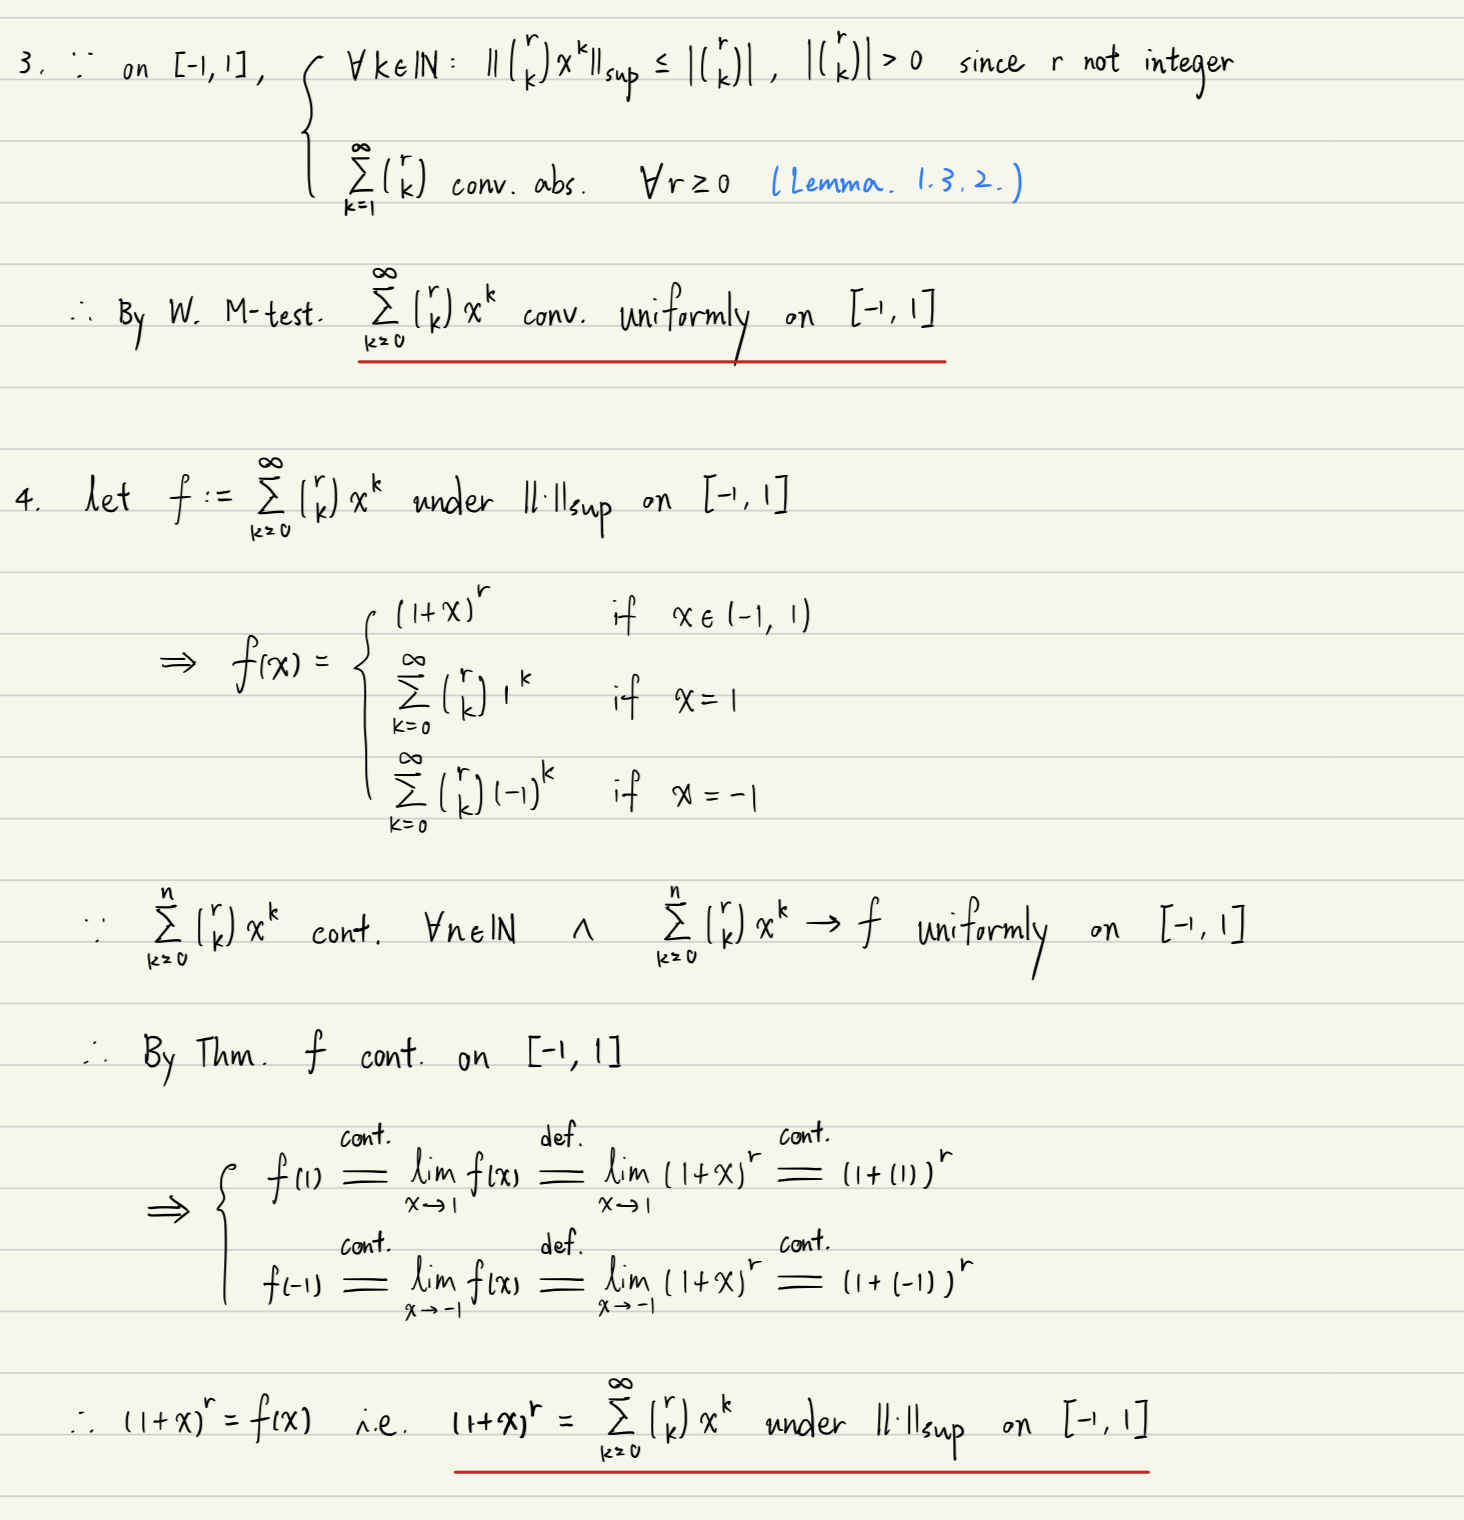 3. ∵ on [-1, 1], { ∀k∈ℕ: ||(r k)x^k||_sup ≤ |(r k)|, |(r k)| > 0 since r not integer
∑_{k=1}^∞ (r k) conv. abs. ∀r≥0 (Lemma. 1.3.2.)
∴ By W. M-test. ∑_{k=0}^∞ (r k) x^k conv. uniformly on [-1, 1]
4. let f := ∑_{k=0}^∞ (r k) x^k under ||·||_sup on [-1, 1]
⇒ f(x) = { (1+x)^r if x∈(-1, 1)
∑_{k=0}^∞ (r k) 1^k if x = 1
∑_{k=0}^∞ (r k)(-1)^k if x = -1
∵ ∑_{k=0}^n (r k) x^k cont. ∀n∈ℕ ∧ ∑_{k=0}^n (r k) x^k → f uniformly on [-1, 1]
∴ By Thm. f cont. on [-1, 1]
⇒ { f(1) =^{cont.} lim_{x→1} f(x) =^{def.} lim_{x→1} (1+x)^r =^{cont.} (1+(1))^r
f(-1) =^{cont.} lim_{x→-1} f(x) =^{def.} lim_{x→-1} (1+x)^r =^{cont.} (1+(-1))^r
∴ (1+x)^r = f(x) i.e. (1+x)^r = ∑_{k=0}^∞ (r k) x^k under ||·||_sup on [-1, 1]